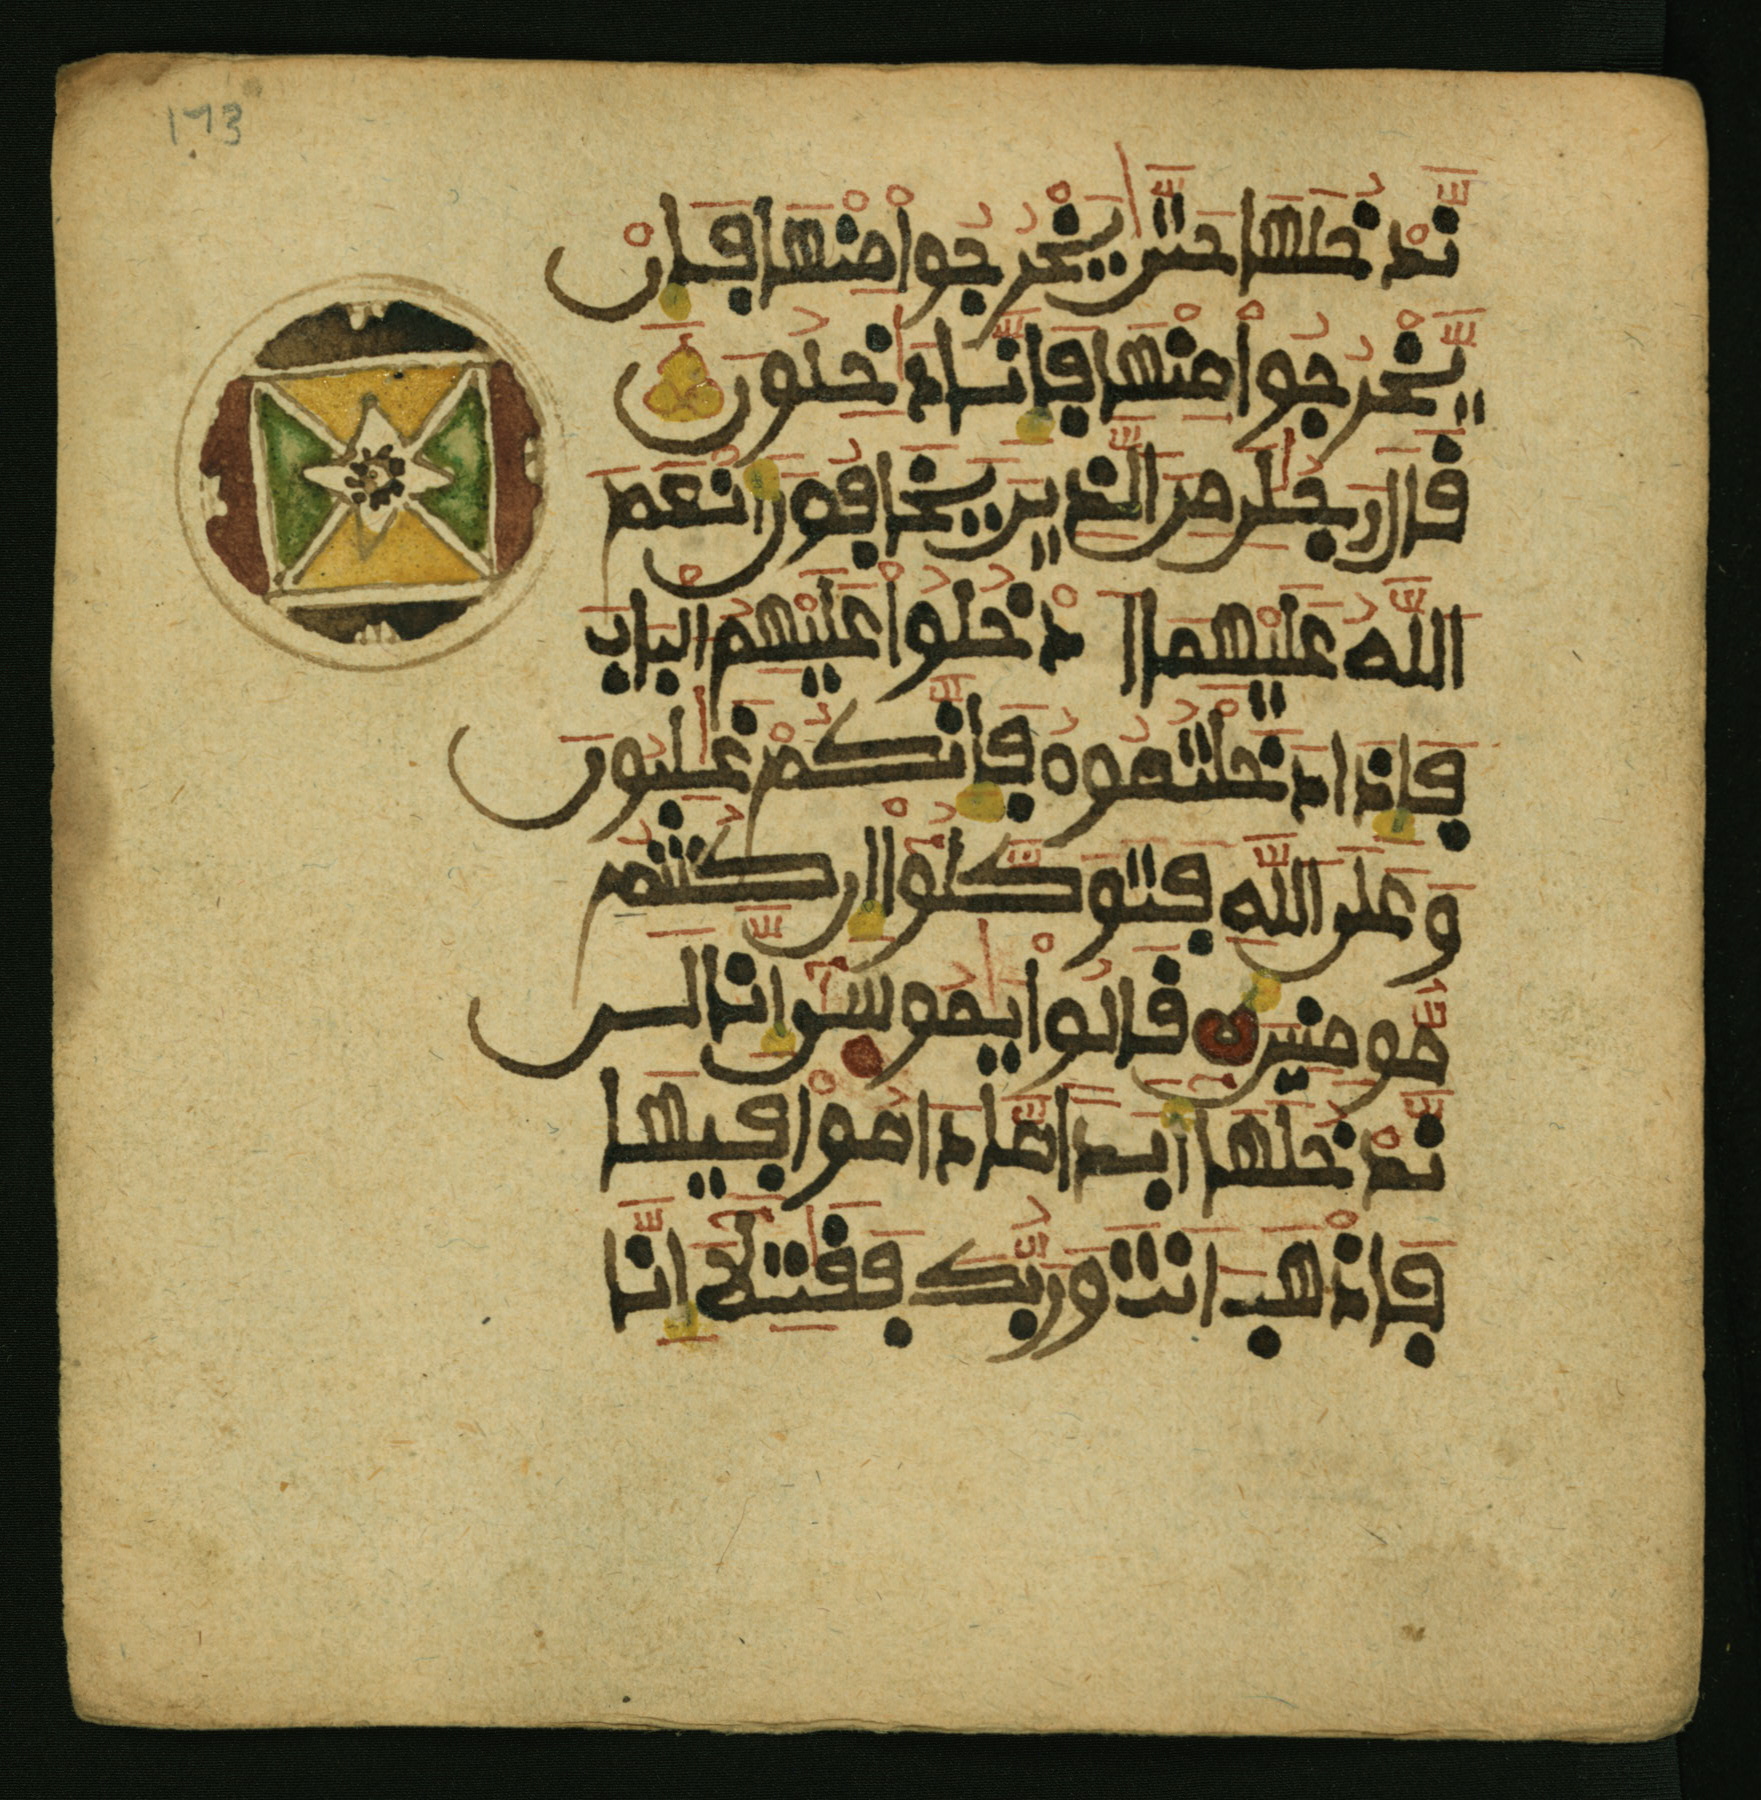 173
نَّدْخُلَهَا حَتَّىٰ يَخْرُجُواْ مِنْهَا فَإِنْ
يَّخْرُجُواْ مِنْهَا فَإِنَّا دَٰخِلُونَ
قَالَ رَجُلَٰنِ مِنَ الَّذِينَ يَخَافُونَ أَنْعَمَ
اللَّهُ عَلَيْهِمَا ادْخُلُواْ عَلَيْهِمُ الْبَابَ
فَإِذَا دَخَلْتُمُوهُ فَإِنَّكُمْ غَٰلِبُونَ
وَعَلَى اللَّهِ فَتَوَكَّلُواْ إِن كُنتُم
مُّومِنِينَ قَالُواْ يَٰمُوسَىٰ إِنَّا لَن
نَّدْخُلَهَا أَبَداً مَّا دَامُواْ فِيهَا
فَاذْهَبَ اَنتَ وَرَبُّكَ فَقَٰتِلَا إِنَّا